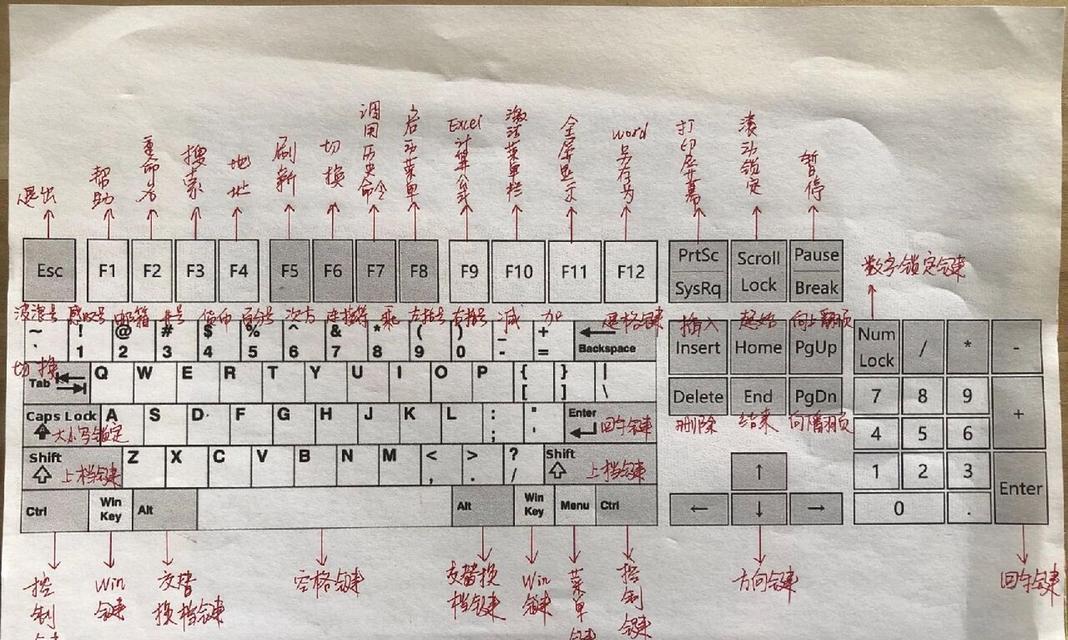 退出 帮助 重命名 搜索 地址 刷新 切换 调用历史命令 启动菜单 Excel计算公式 激活菜单栏 全屏显示 word另存为 打印屏幕 滚动锁定 暂停
Esc F1 F2 F3 F4 F5 F6 F7 F8 F9 F10 F11 F12 PrtSc SysRq Scroll Lock Pause Break
数字锁定键
波浪号 感叹号 邮箱 井号 货币 百分号 次方 连接符 乘 左括号 右括号 减 加 退格键 插入 起始 向上翻页
~ ! @ # $ % ^ & * ( ) _ +
` 1 2 3 4 5 6 7 8 9 0 - = Backspace Insert Home PgUp Num Lock / * -
切换
Tab Q W E R T Y U I O P { } |
[ ] \
Delete End PgDn 7 8 9 +
Caps Lock A S D F G H J K L : " Enter
大小写锁定 ; ' 回车键 删除 结束 向下翻页
4 5 6
Shift Z X C V B N M < > ? Shift
上档键 , . / 上档键 ↑ 1 2 3 Enter
Ctrl Win Key Alt Alt Win Key Menu Ctrl ← ↓ → 0 .
控制键 Win键 交替换档键 空格键 交替换档键 Win键 菜单键 控制键 方向键 回车键